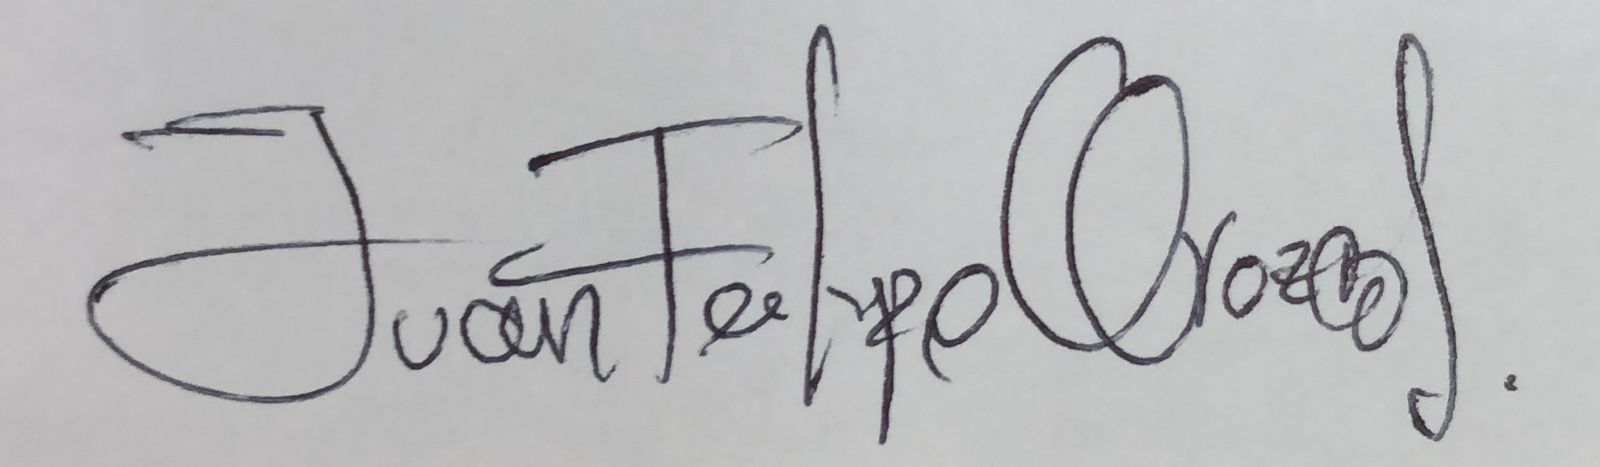 Juan Felipe Orozco J.